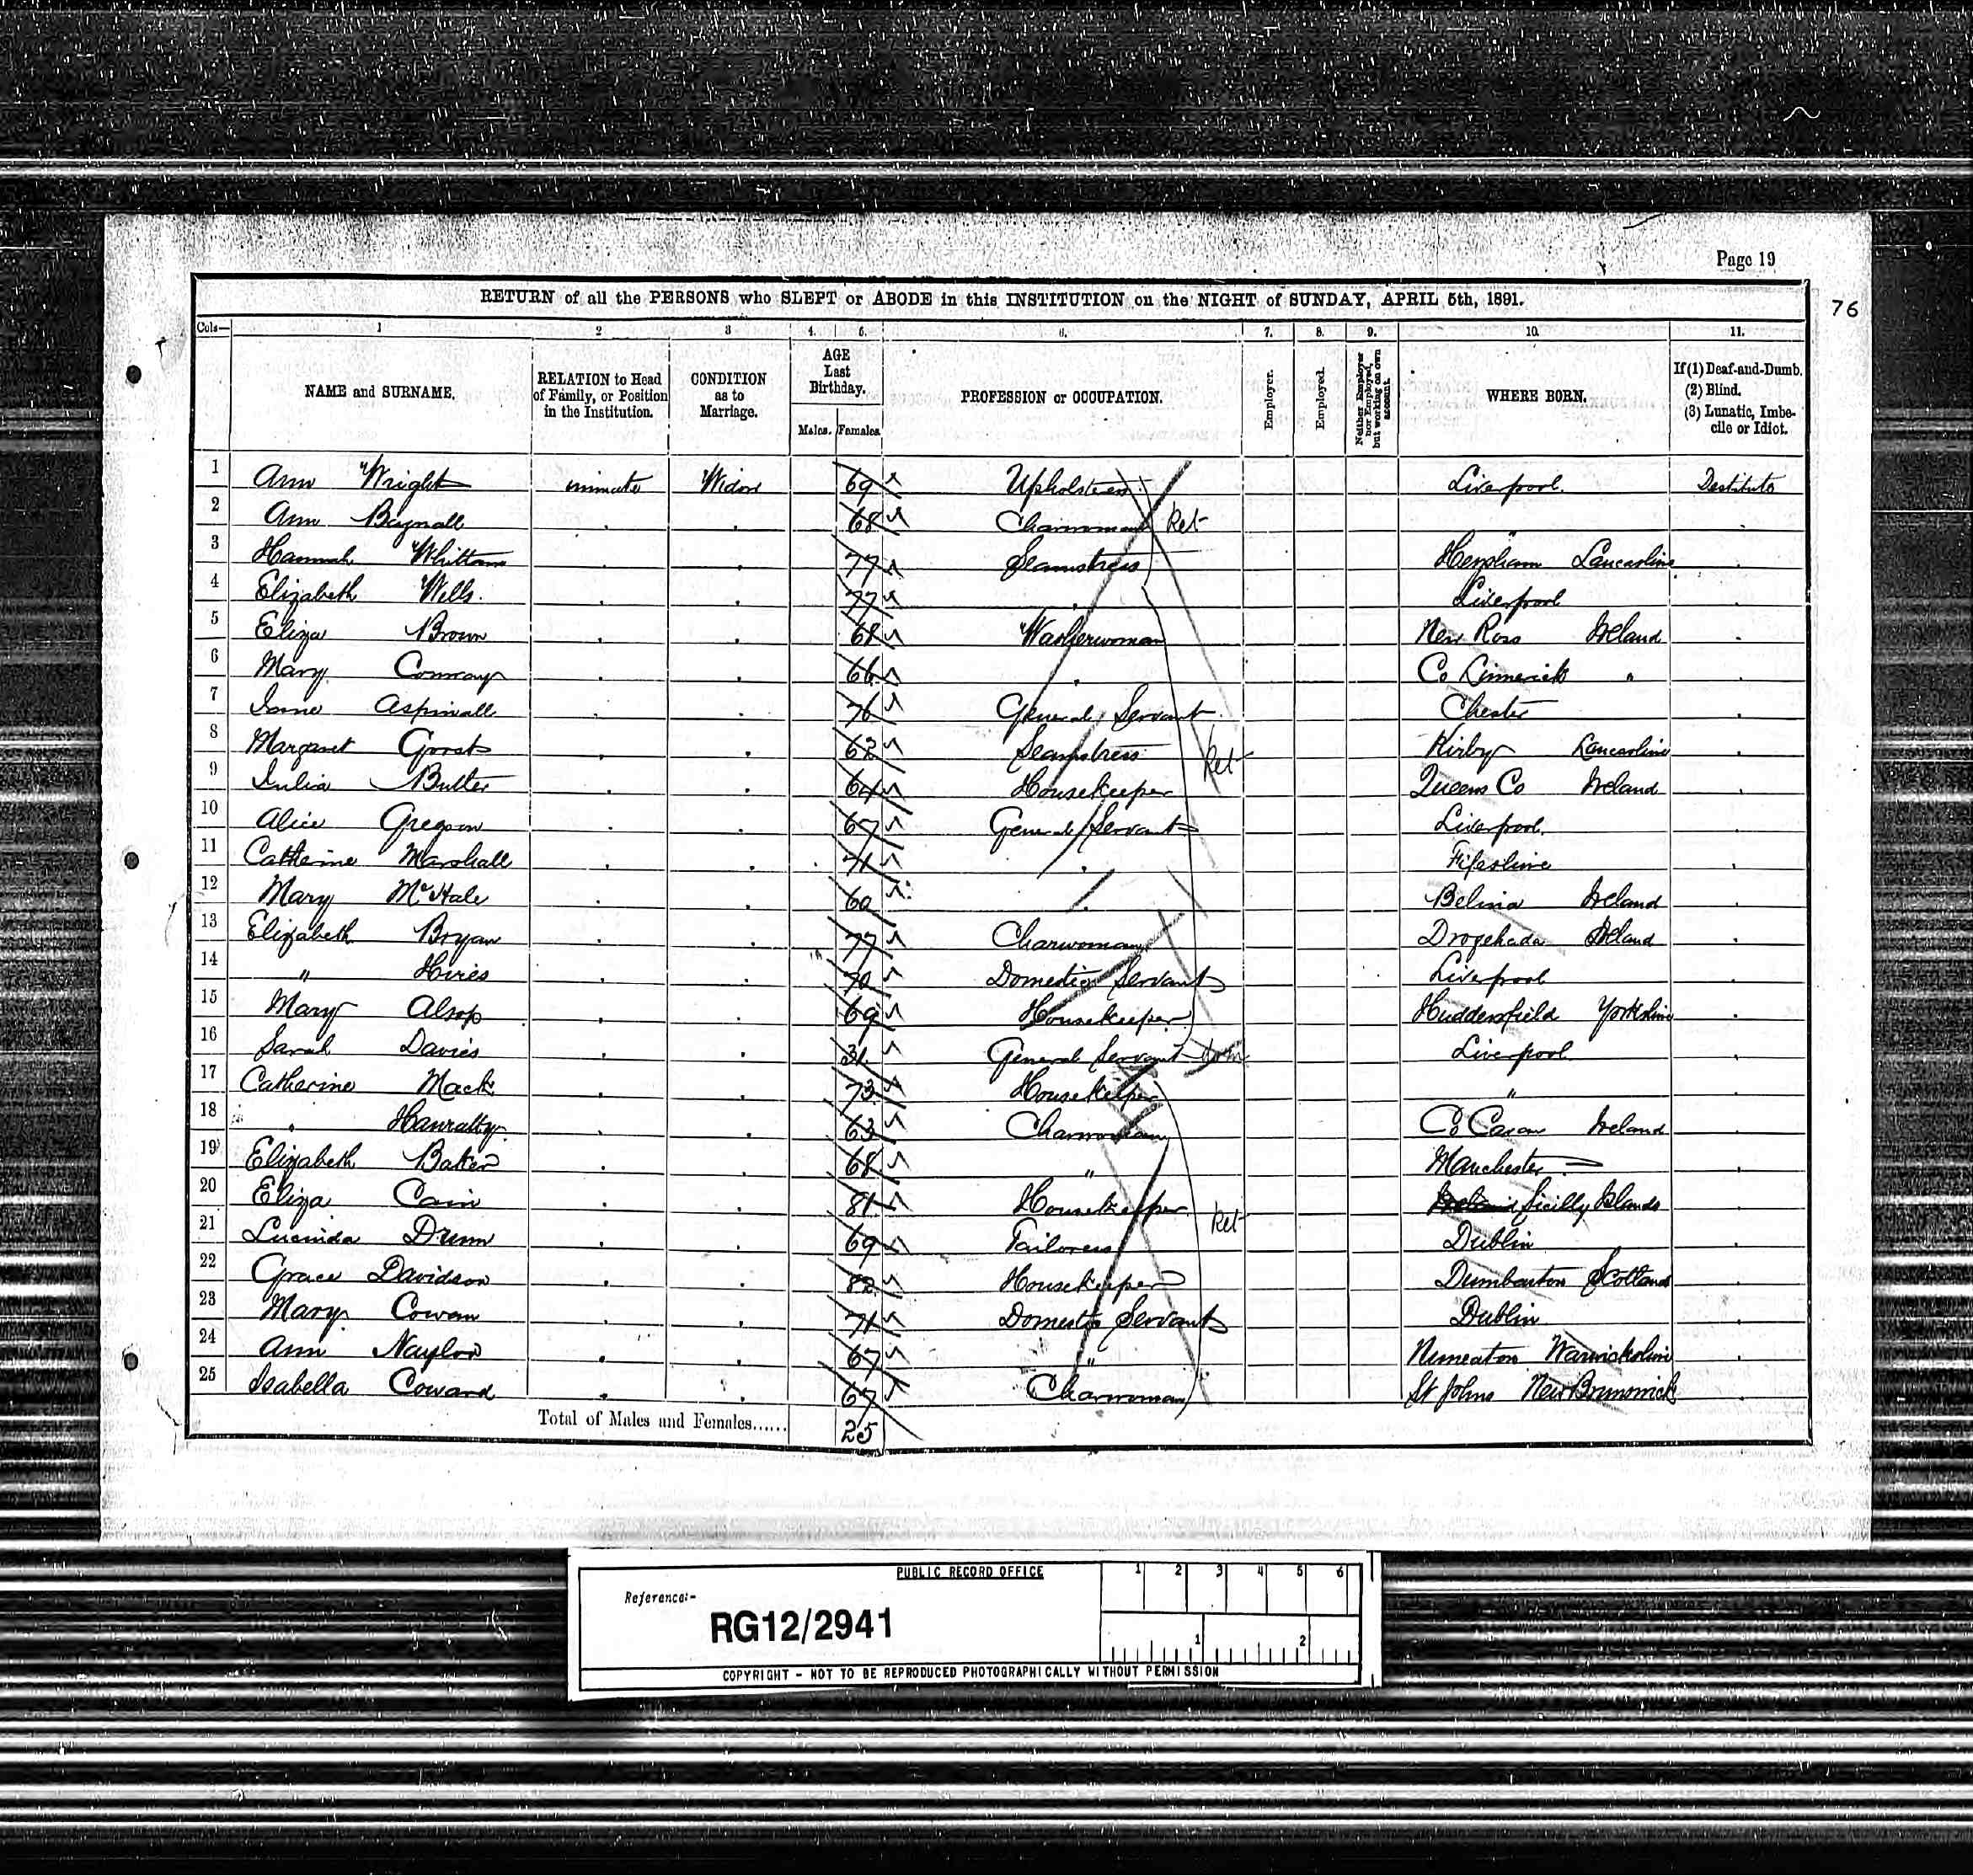 Page 19
76
RETURN of all the PERSONS who SLEPT or ABODE in this INSTITUTION on the NIGHT of SUNDAY, APRIL 5th, 1891.
Cols— 1 2 3 4. 5. 6. 7. 8. 9. 10. 11.
NAME and SURNAME. RELATION to Head of Family, or Position in the Institution. CONDITION as to Marriage. AGE Last Birthday. Males. Females. PROFESSION or OCCUPATION. Employer. Employed. Neither Employer nor Employed, but working on own account. WHERE BORN. If (1) Deaf-and-Dumb. (2) Blind. (3) Lunatic, Imbecile or Idiot.
1 Ann Wright inmate Widow 69 Upholsteress Liverpool. Destitute
2 Ann Bagnall . . 68 Charwoman Ret " .
3 Hannah Whittam . . 77 Seamstress Lancashire .
4 Elizabeth Wells . . 77 . Liverpool .
5 Eliza Brown . . 68 Washerwoman New Ross Ireland .
6 Mary Conway . . 66 . Co Limerick " .
7 Jane Aspinall . . 76 General Servant Chester .
8 Margaret . . 62 Seamstress Ret Kirby Lancashire .
9 Julia Butler . . 64 Housekeeper Queens Co Ireland .
10 Alice Gregson . . 67 General Servant Liverpool. .
11 Catherine Marshall . . 71 . Fifeshire .
12 Mary McHale . . 60 . Belina Ireland .
13 Elizabeth Bryan . . 77 Charwoman Drogehada Ireland .
14 " Hires . . 70 Domestic Servant Liverpool .
15 Mary Alsop . . 69 Housekeeper Huddersfield Yorkshire .
16 Sarah Davies . . 31 General Servant Dom Liverpool .
17 Catherine Mack . . 73 Housekeeper " .
18 . Hanratty . . 63 Charwoman Co Cavan Ireland .
19 Elizabeth Baker . . 68 " Manchester .
20 Eliza Cain . . 81 Housekeeper Ret Sicilly Islands .
21 Lucinda Drum . . 69 Tailoress Dublin .
22 Grace Davidson . . 82 Housekeeper Dumbarton Scotland .
23 Mary Cowan . . 71 Domestic Servant Dublin .
24 Ann Naylor . . 67 " Nuneaton Warwickshire .
25 Isabella Coward . . 67 Charwoman St Johns New Brunswick .
Total of Males and Females...... 25
PUBLIC RECORD OFFICE
Reference:-
RG12/2941
1 2 3 4 5 6
1 2
COPYRIGHT - NOT TO BE REPRODUCED PHOTOGRAPHICALLY WITHOUT PERMISSION